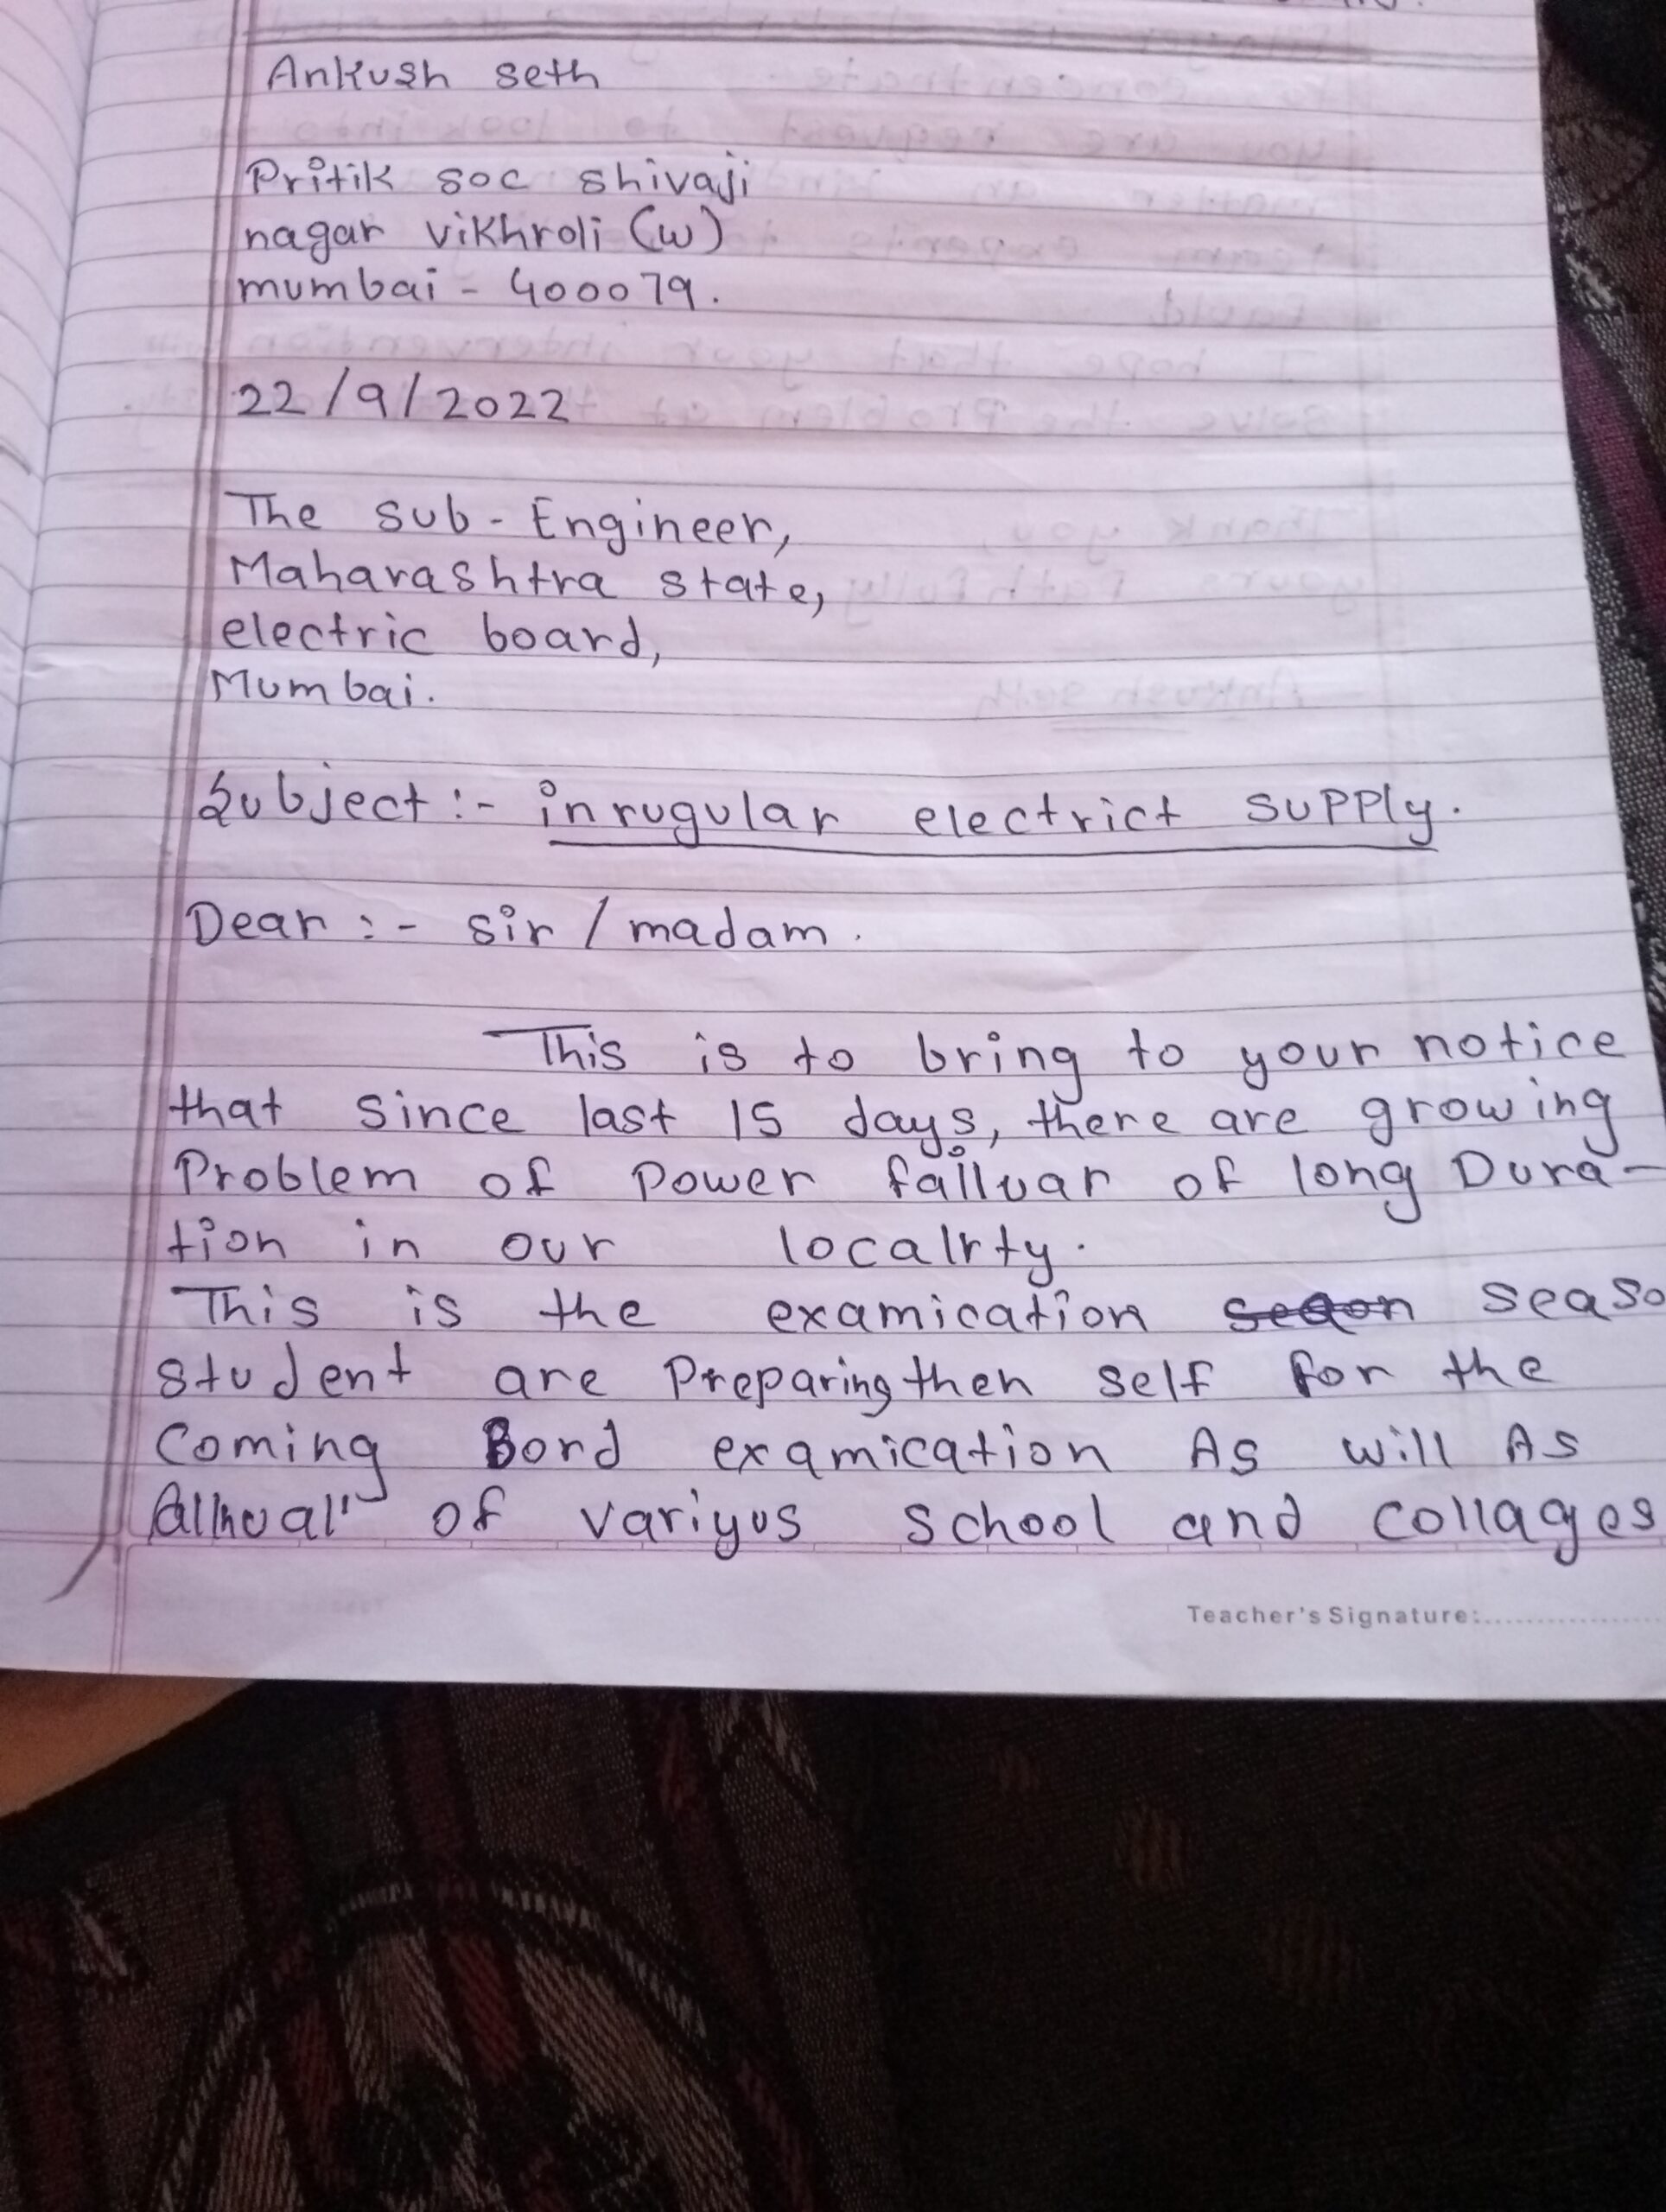 Ankush seth
Pritik soc shivaji
nagar vikhroli (w)
mumbai - 400079.
22/9/2022
The sub-Engineer,
Maharashtra state,
electric board,
Mumbai.
Subject :- inrugular electrict supply.
Dear :- sir / madam.
This is to bring to your notice
that since last 15 days, there are growing
Problem of power failuar of long Dura-
tion in our localrty.
This is the examication seaso
student are Preparing then self for the
coming Bord examication As will As
of variyus school and collages
Teacher's Signature: